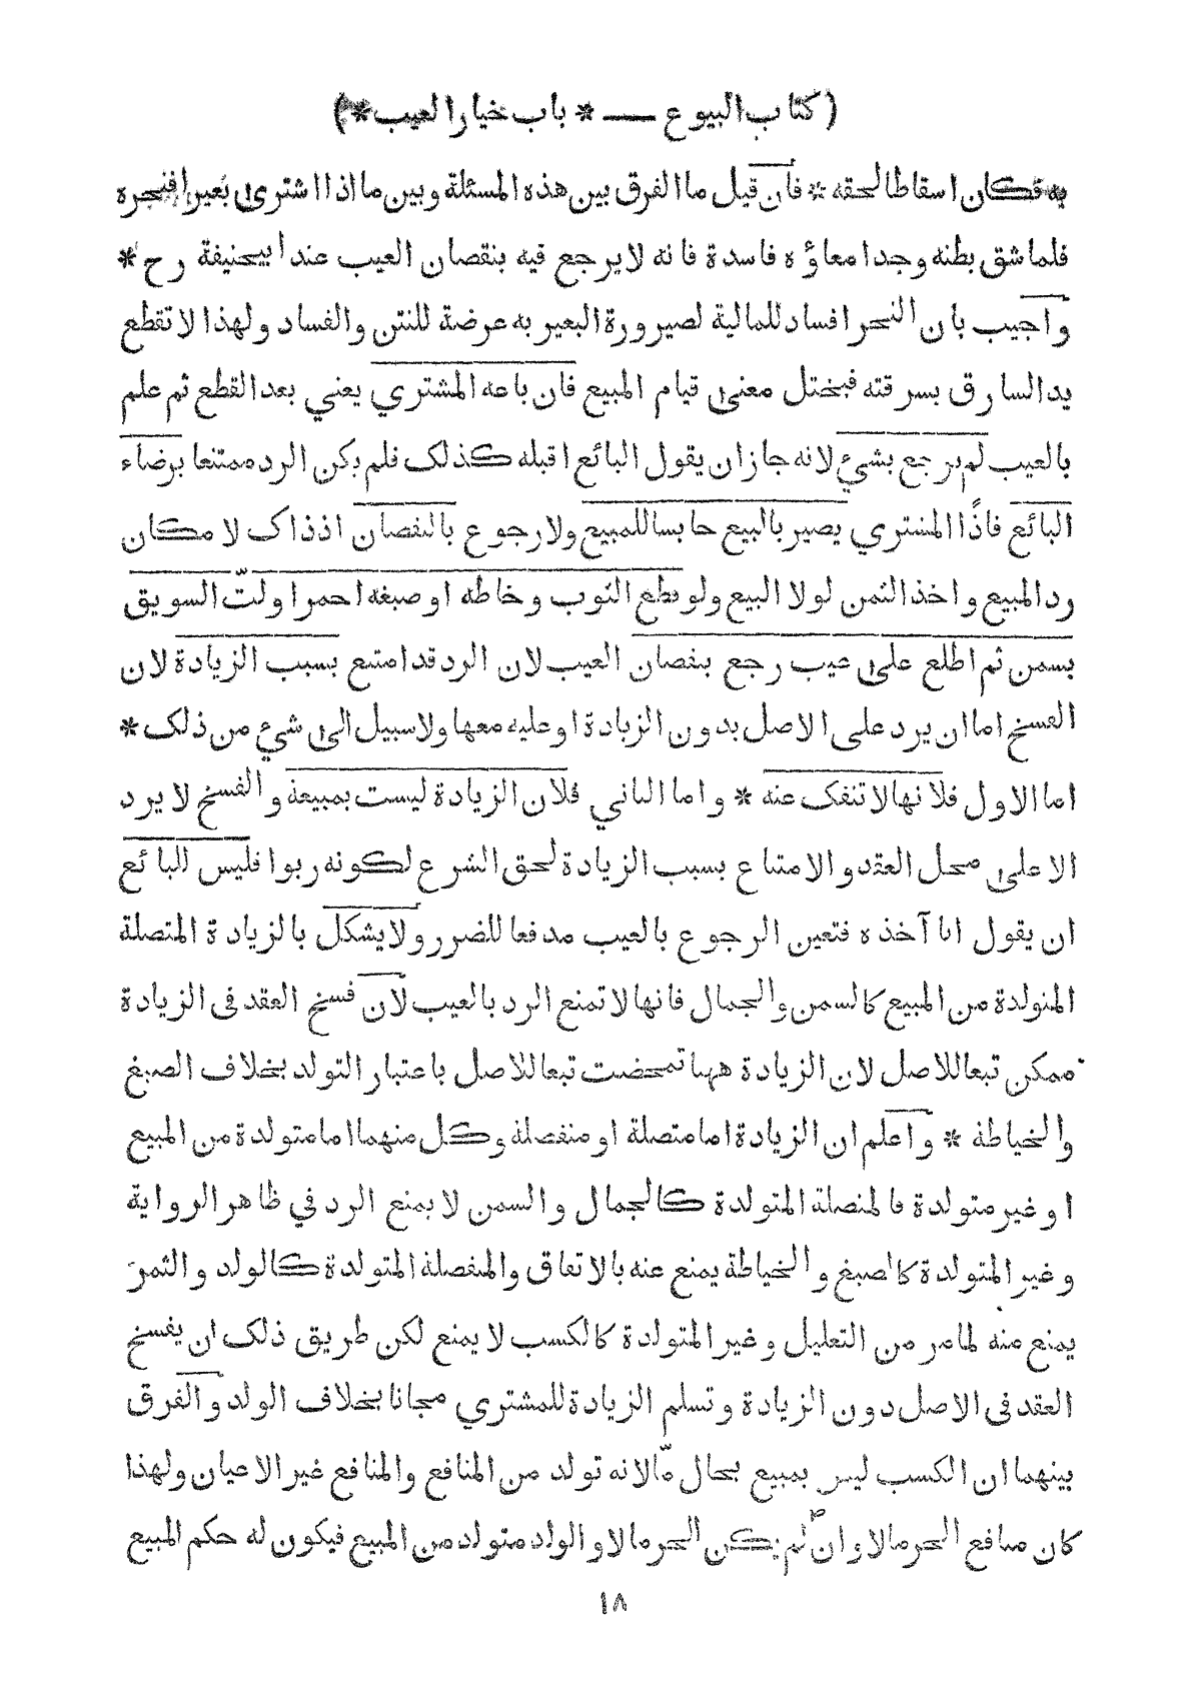 ( كتاب البيوع — * باب خيار العيب * )
به فكان اسقاطا لحقه * فان قيل ما الفرق بين هذه المسئلة وبين ما اذا اشترى بعيرا فنحره
فلما شق بطنه وجد امعاؤه فاسدة فانه لا يرجع فيه بنقصان العيب عند ابيحنيفة رح *
واجيب بان النحر افساد للمالية لصيرورة البعير به عرضة للنتن والفساد ولهذا لا تقطع
يد السارق بسرقته فيختل معنى قيام المبيع فان باعه المشتري يعني بعد القطع ثم علم
بالعيب لم يرجع بشيء لانه جاز ان يقول البائع اقبله كذلك فلم يكن الرد ممتنعا برضاء
البائع فاذًا المشتري يصير بالبيع حابسا للمبيع ولا رجوع بالنقصان اذ ذاك لا مكان
رد المبيع واخذ الثمن لولا البيع ولو قطع الثوب وخاطه او صبغه احمر او لتّ السويق
بسمن ثم اطلع على عيب رجع بنقصان العيب لان الرد قد امتنع بسبب الزيادة لان
الفسخ اما ان يرد على الاصل بدون الزيادة او عليه معها ولا سبيل الى شيء من ذلك *
اما الاول فلانها لا تنفك عنه * واما الثاني فلان الزيادة ليست بمبيعة والفسخ لا يرد
الا على محل العقد والامتناع بسبب الزيادة لحق الشرع لكونه ربوا فليس للبائع
ان يقول انا آخذه فتعين الرجوع بالعيب مدفعا للضرر ولا يشكل بالزيادة المتصلة
المتولدة من المبيع كالسمن والجمال فانها لا تمنع الرد بالعيب لان فسخ العقد فى الزيادة
ممكن تبعا للاصل لان الزيادة ههنا تمحضت تبعا للاصل باعتبار التولد بخلاف الصبغ
والخياطة * واعلم ان الزيادة اما متصلة او منفصلة وكل منهما اما متولدة من المبيع
او غير متولدة فالمتصلة المتولدة كالجمال والسمن لا يمنع الرد في ظاهر الرواية
وغير المتولدة كالصبغ والخياطة يمنع عنه بالاتفاق والمنفصلة المتولدة كالولد والثمر
يمنع منه لما مر من التعليل وغير المتولدة كالكسب لا يمنع لكن طريق ذلك ان يفسخ
العقد فى الاصل دون الزيادة وتسلم الزيادة للمشتري مجانا بخلاف الولد والفرق
بينهما ان الكسب ليس بمبيع بحال مّا لانه تولد من المنافع والمنافع غير الاعيان ولهذا
كان منافع الحر مالا وان لم يكن الحر مالا والولد متولد من المبيع فيكون له حكم المبيع
١٨